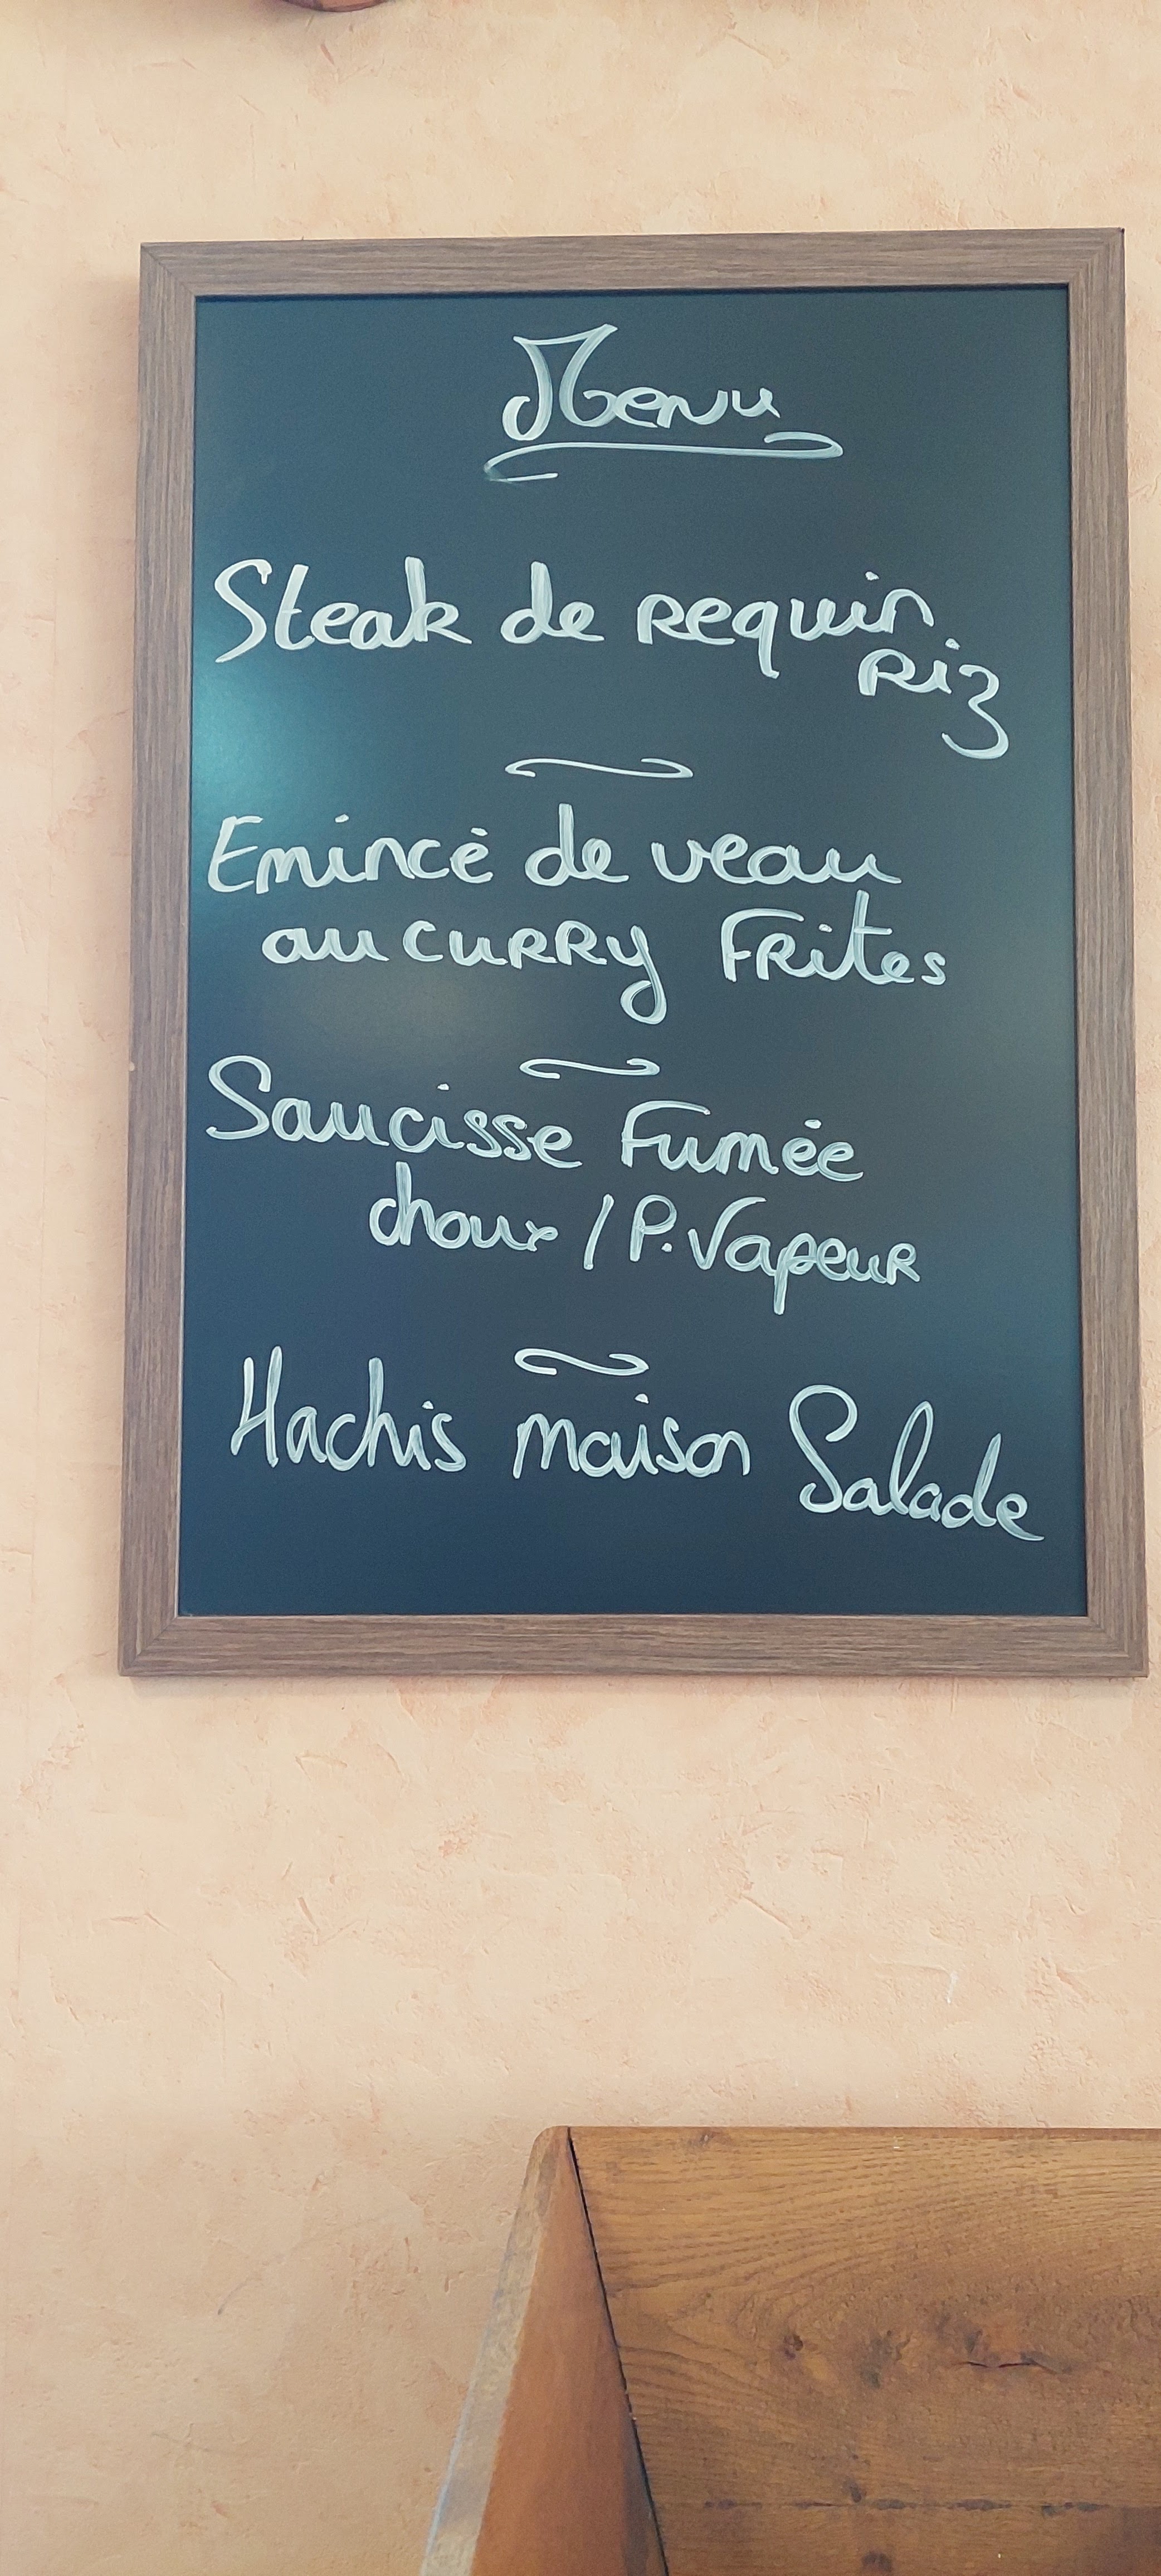 Menu
Steak de requin
Riz
Emincé de veau
au curry Frites
Saucisse Fumée
choux / P. Vapeur
Hachis maison Salade